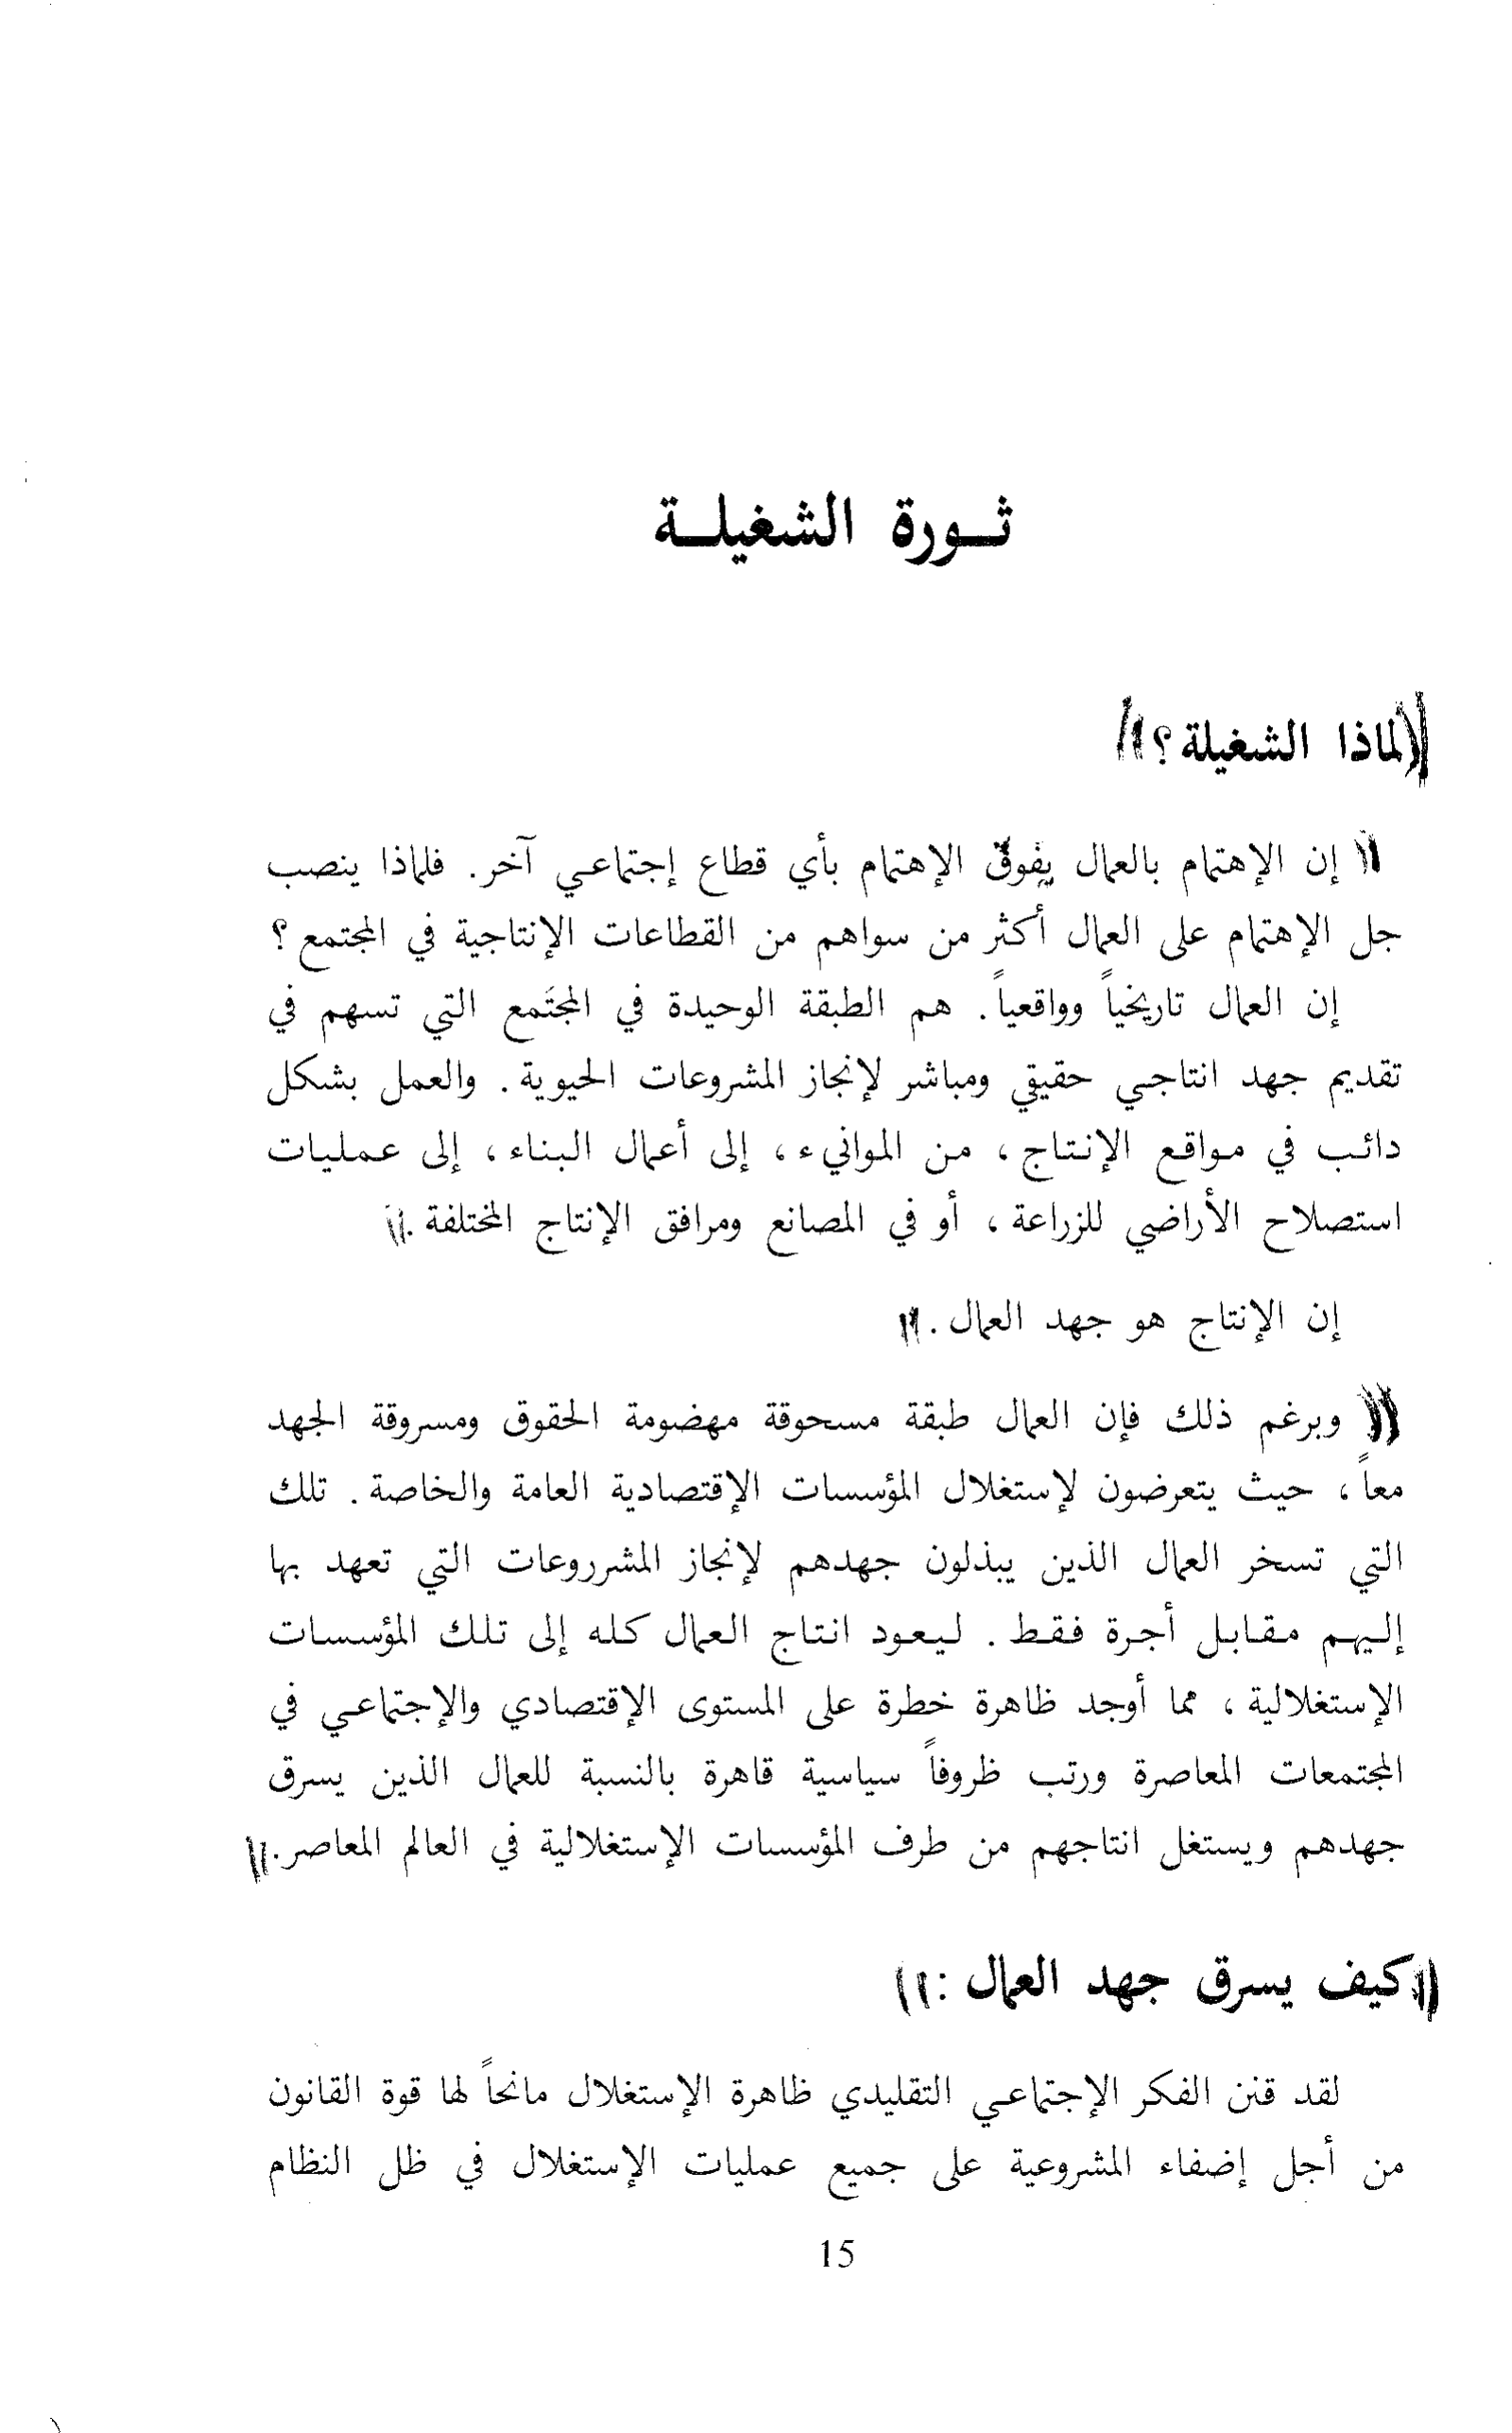 ثورة الشغيلة
((لماذا الشغيلة؟))
(( إن الإهتمام بالعمال يفوق الإهتمام بأي قطاع إجتماعي آخر. فلماذا ينصب
جل الإهتمام على العمال أكثر من سواهم من القطاعات الإنتاجية في المجتمع؟
إن العمال تاريخياً وواقعياً. هم الطبقة الوحيدة في المجتَمع التي تسهم في
تقديم جهد انتاجي حقيقي ومباشر لإنجاز المشروعات الحيوية. والعمل بشكل
دائب في مواقع الإنتاج، من الموانيء، إلى أعمال البناء، إلى عمليات
استصلاح الأراضي للزراعة، أو في المصانع ومرافق الإنتاج المختلفة.))
إن الإنتاج هو جهد العمال.))
(( وبرغم ذلك فإن العمال طبقة مسحوقة مهضومة الحقوق ومسروقة الجهد
معاً، حيث يتعرضون لإستغلال المؤسسات الإقتصادية العامة والخاصة. تلك
التي تسخر العمال الذين يبذلون جهدهم لإنجاز المشرروعات التي تعهد بها
إليهم مقابل أجرة فقط. ليعود انتاج العمال كله إلى تلك المؤسسات
الإستغلالية، مما أوجد ظاهرة خطرة على المستوى الإقتصادي والإجتماعي في
المجتمعات المعاصرة ورتب ظروفاً سياسية قاهرة بالنسبة للعمال الذين يسرق
جهدهم ويستغل انتاجهم من طرف المؤسسات الإستغلالية في العالم المعاصر.))
((كيف يسرق جهد العمال:))
لقد قنن الفكر الإجتماعي التقليدي ظاهرة الإستغلال مانحاً لها قوة القانون
من أجل إضفاء المشروعية على جميع عمليات الإستغلال في ظل النظام
15